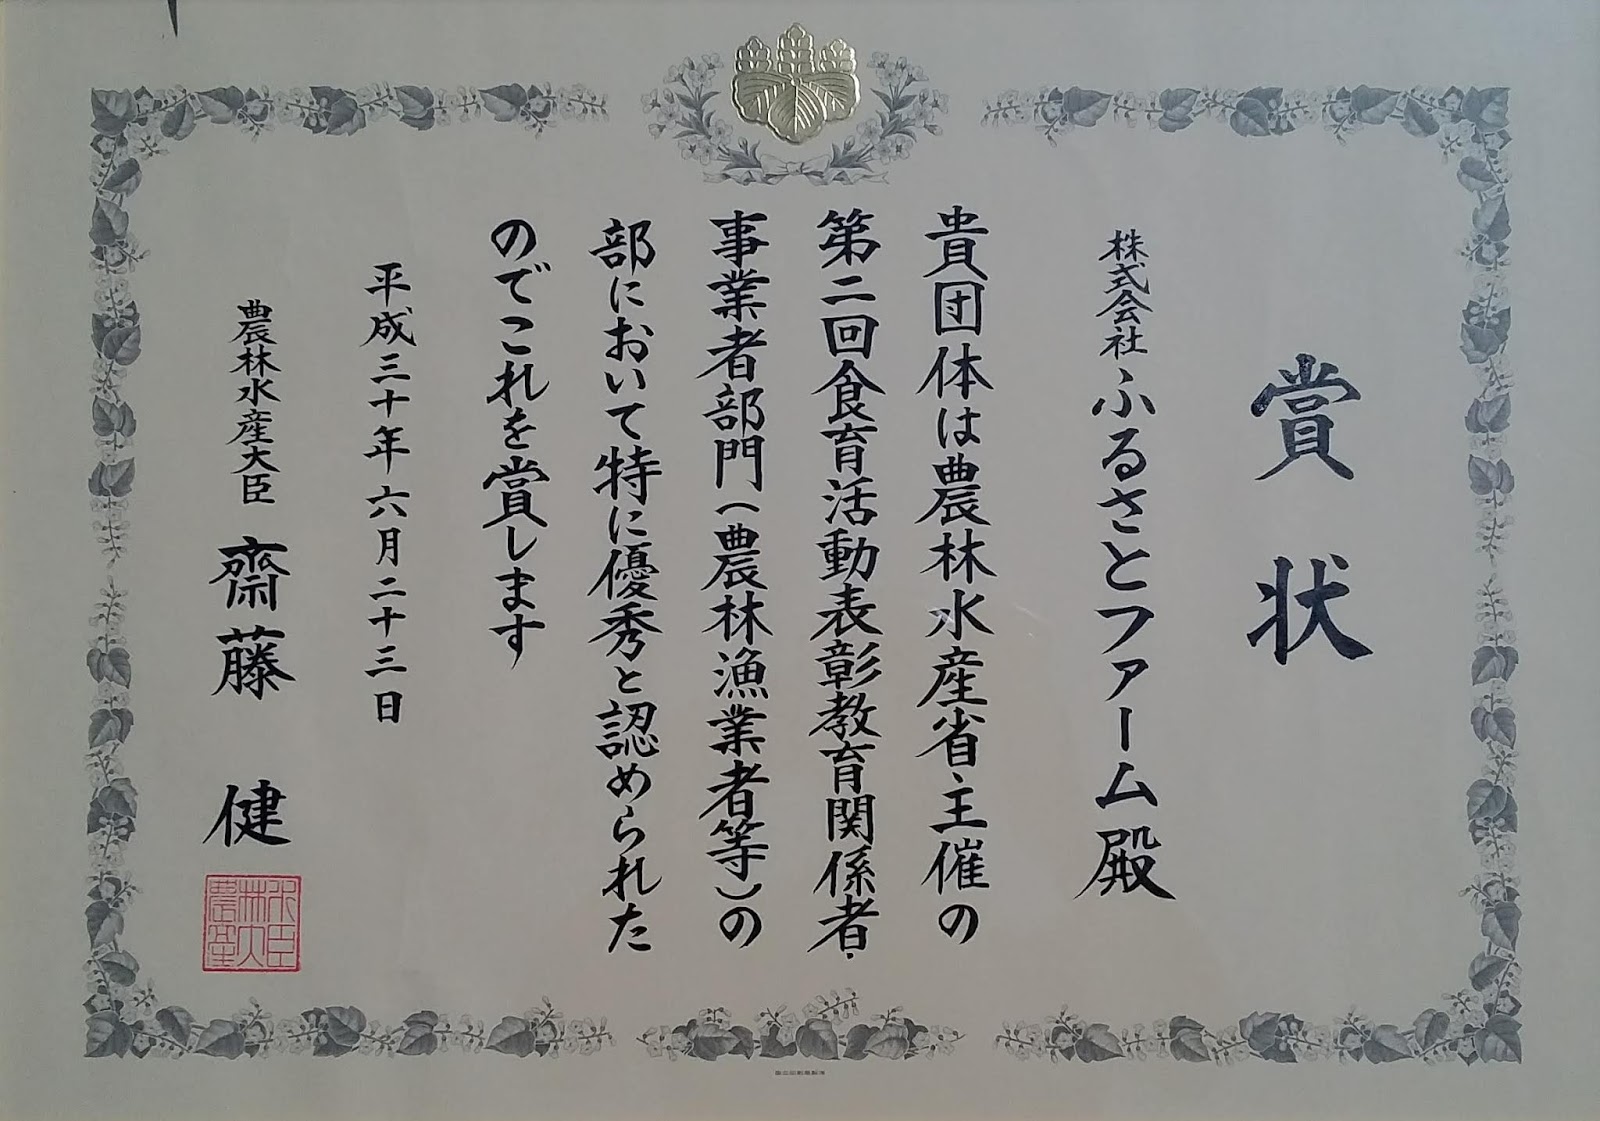 賞状
株式会社ふるさとファーム殿
貴団体は農林水産省主催の
第二回食育活動表彰教育関係者・
事業者部門(農林漁業者等)の
部において特に優秀と認められた
のでこれを賞します
平成三十年六月二十三日
農林水産大臣 齋藤 健